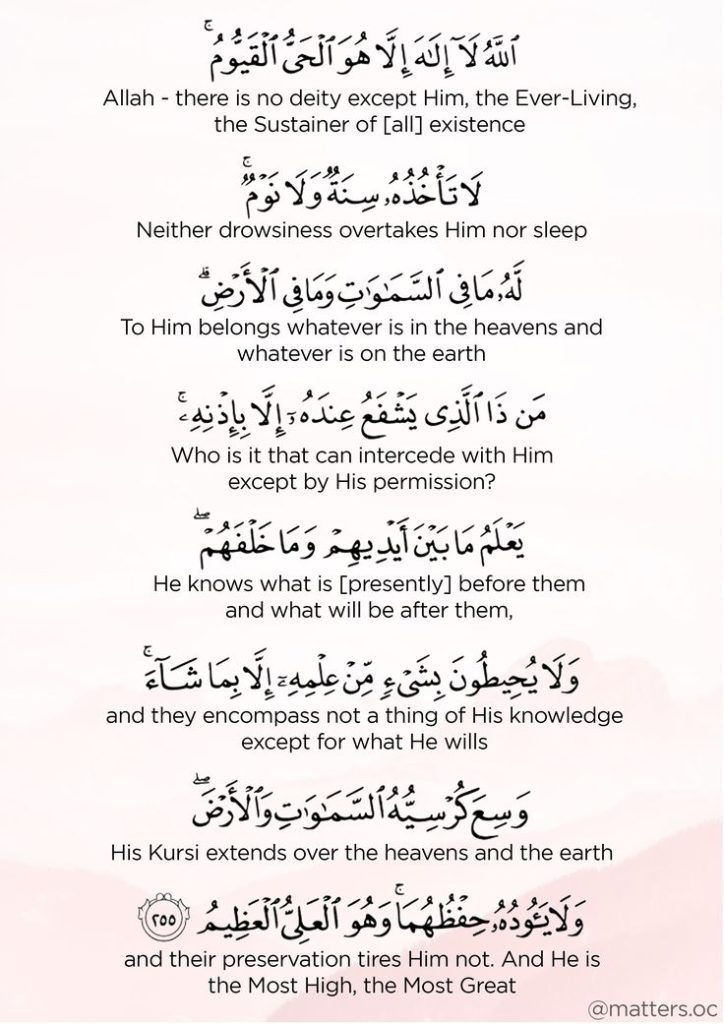 ٱللَّهُ لَآ إِلَـٰهَ إِلَّا هُوَ ٱلْحَىُّ ٱلْقَيُّومُ ۚ
Allah - there is no deity except Him, the Ever-Living,
the Sustainer of [all] existence
لَا تَأْخُذُهُۥ سِنَةٌ وَلَا نَوْمٌ ۚ
Neither drowsiness overtakes Him nor sleep
لَّهُۥ مَا فِى ٱلسَّمَـٰوَٰتِ وَمَا فِى ٱلْأَرْضِ ۗ
To Him belongs whatever is in the heavens and
whatever is on the earth
مَن ذَا ٱلَّذِى يَشْفَعُ عِندَهُۥٓ إِلَّا بِإِذْنِهِۦ ۚ
Who is it that can intercede with Him
except by His permission?
يَعْلَمُ مَا بَيْنَ أَيْدِيهِمْ وَمَا خَلْفَهُمْ ۖ
He knows what is [presently] before them
and what will be after them,
وَلَا يُحِيطُونَ بِشَىْءٍ مِّنْ عِلْمِهِۦٓ إِلَّا بِمَا شَآءَ ۚ
and they encompass not a thing of His knowledge
except for what He wills
وَسِعَ كُرْسِيُّهُ ٱلسَّمَـٰوَٰتِ وَٱلْأَرْضَ ۖ
His Kursi extends over the heavens and the earth
وَلَا يَـُٔودُهُۥ حِفْظُهُمَا ۚ وَهُوَ ٱلْعَلِىُّ ٱلْعَظِيمُ ٢٥٥
and their preservation tires Him not. And He is
the Most High, the Most Great
@matters.oc